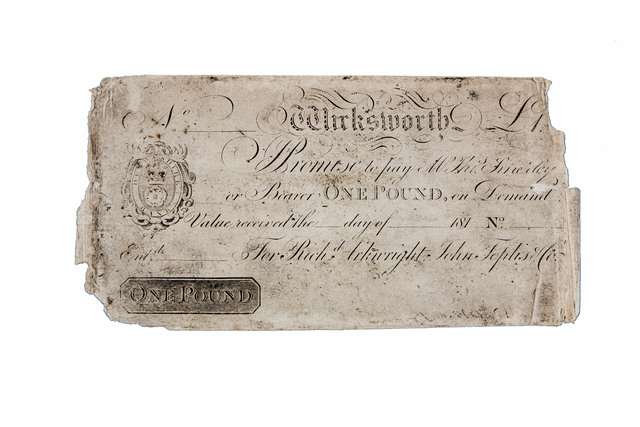 No Wirksworth £1
I Promise to pay Mr Thos.
or Bearer ONE POUND, on Demand
Value received the day of 181 No
Entd. For Richd. Arkwright, John Toplis & Co.
ONE POUND